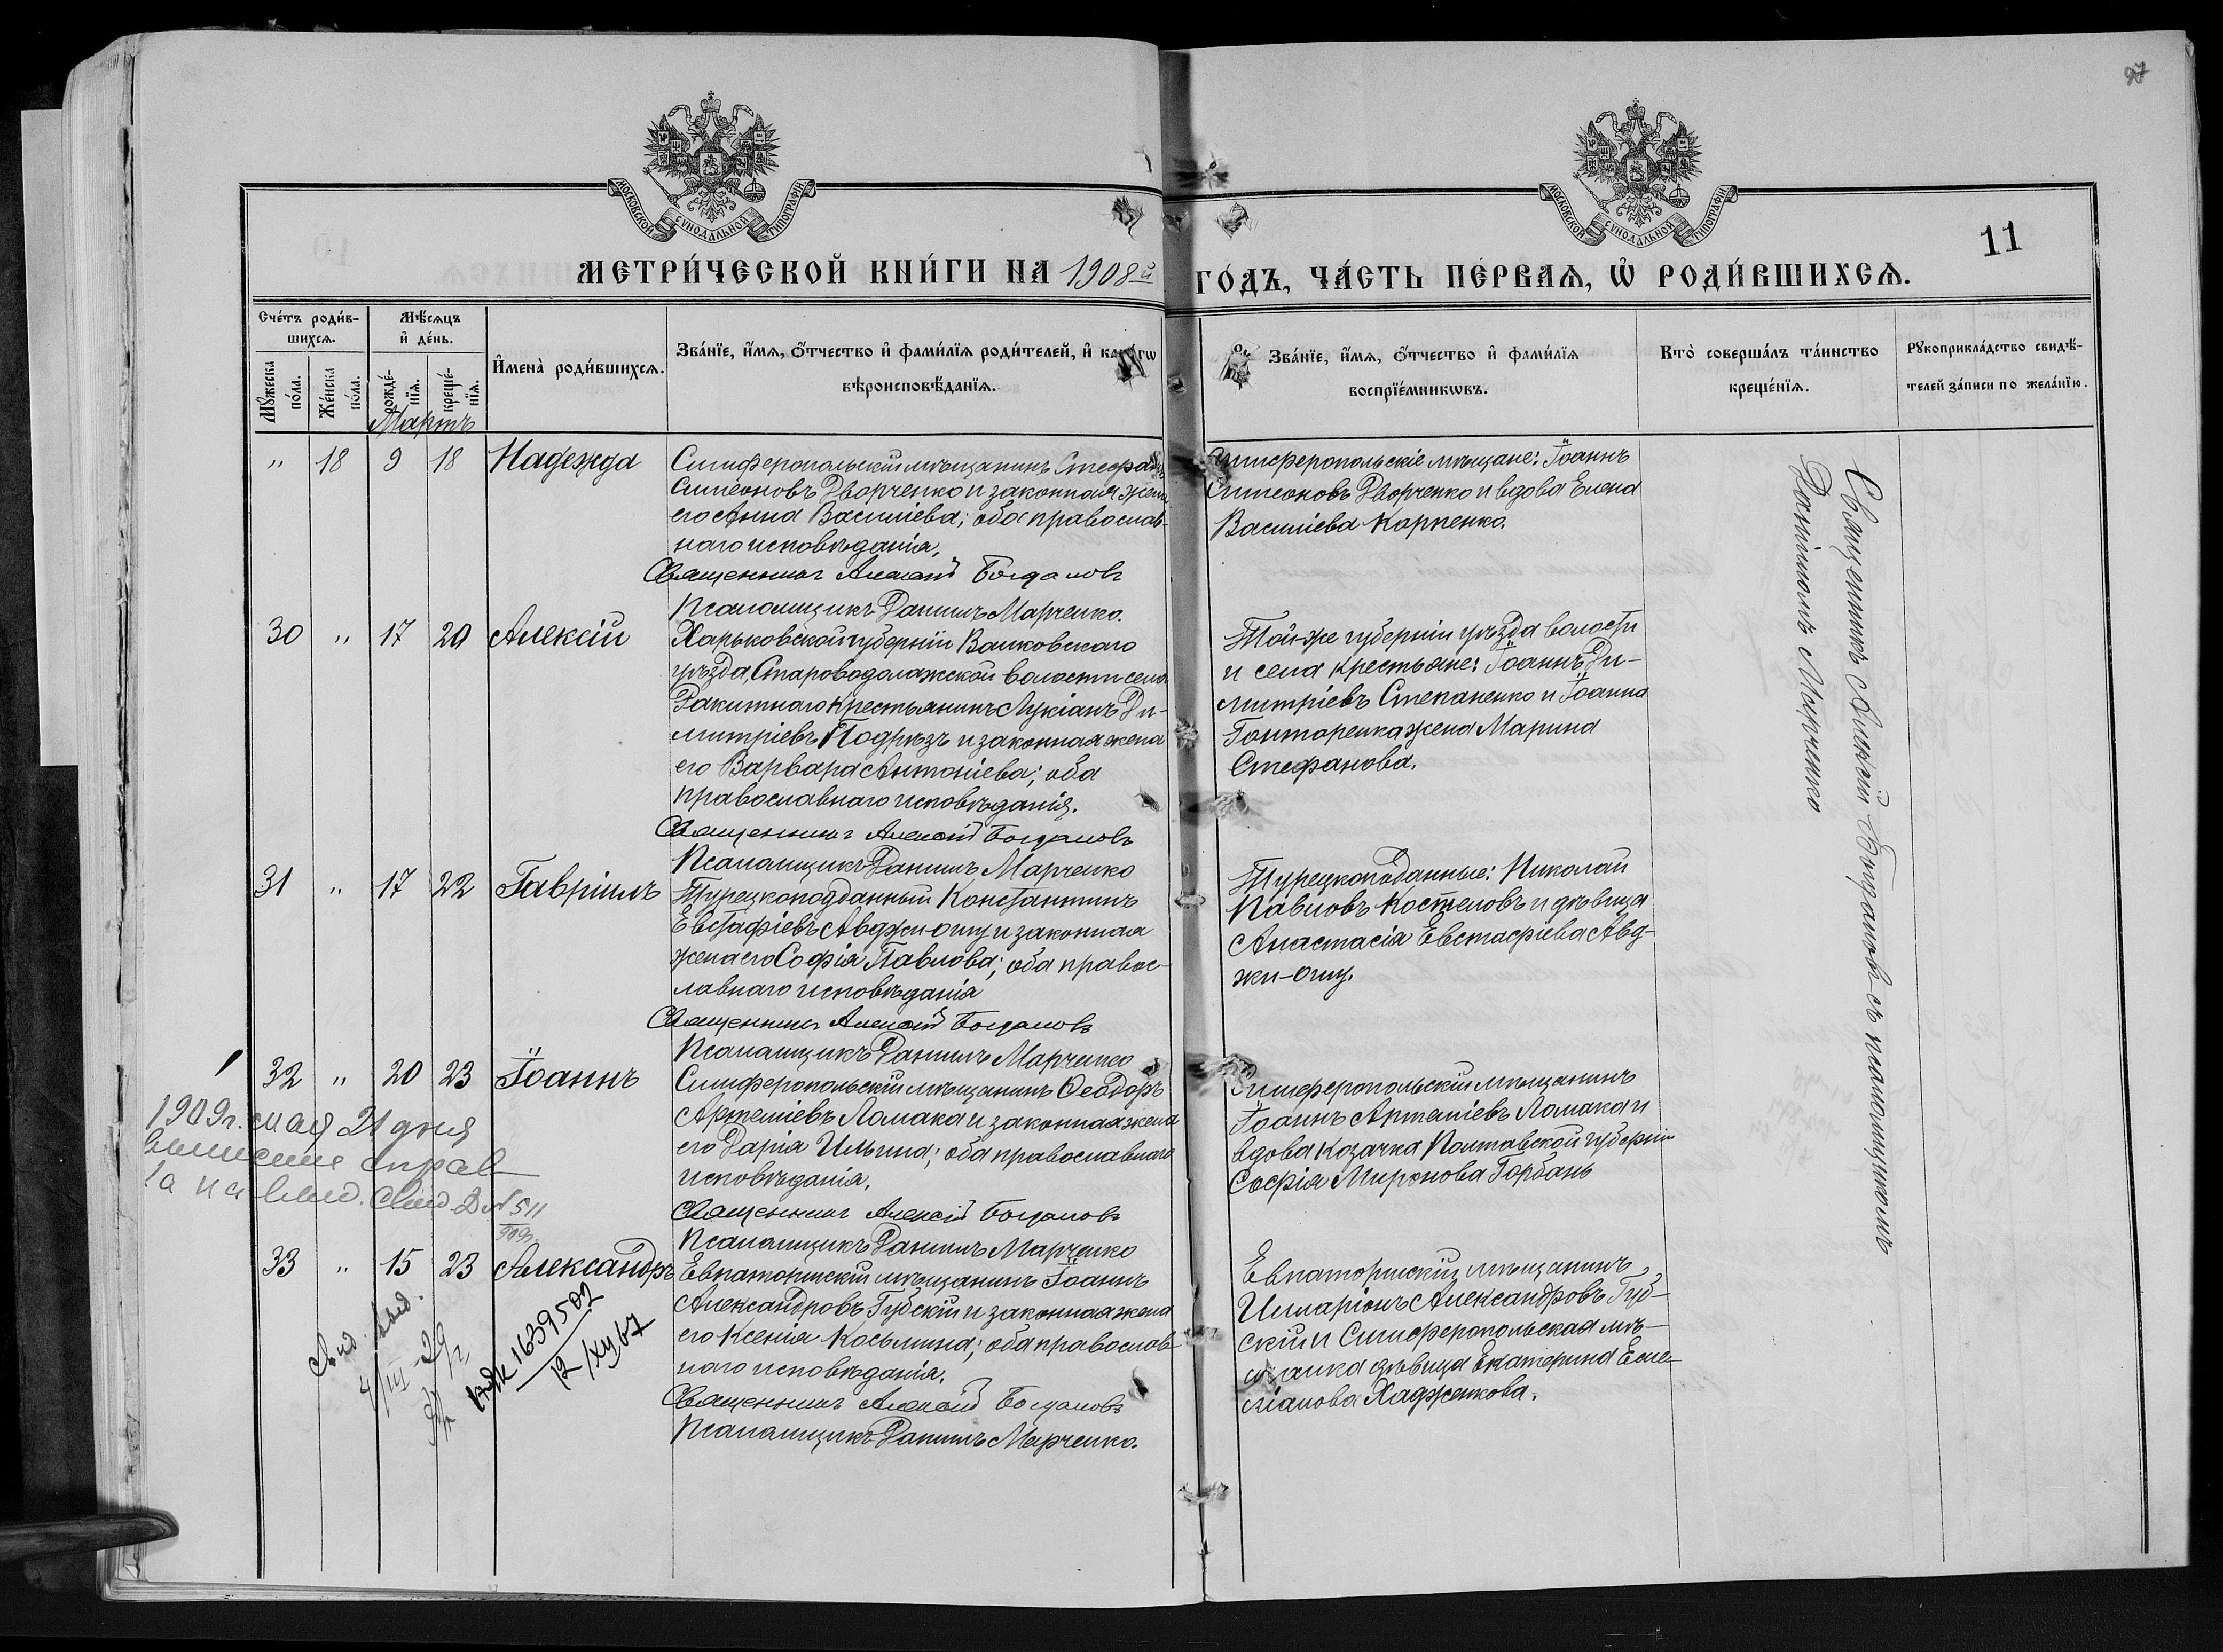 97
МОСКОВСКОЙ СѴНОДАЛЬНОЙ ТИПОГРАФІИ
МОСКОВСКОЙ СѴНОДАЛЬНОЙ ТИПОГРАФІИ
11
МЕТРИ́ЧЕСКОЙ КНИ́ГИ НА 1908й ГО́ДЪ, ЧА́СТЬ ПЕ́РВАѦ, Ѡ҆ РОДИ́ВШИХСѦ.
Сче́тъ роди́в-
шихсѧ.
Мꙋ́жеска по́ла.
Же́нска по́ла.
Мѣ́сѧцъ
и҆ де́нь.
рожде́-нїѧ.
креще́-нїѧ.
И҆мена̀ роди́вшихсѧ.
Зва́нїе, и҆́мѧ, ѻ҆́тчество и҆ фами́лїѧ роди́телей, и҆ како́гѡ
вѣроисповѣ́данїѧ.
Зва́нїе, и҆́мѧ, ѻ҆́тчество и҆ фами́лїѧ
воспрїе́мникѡвъ.
Кто̀ соверша́лъ та́инство
креще́нїѧ.
Рꙋкоприкла́дство свидѣ́-
телей за́писи по жела́нїю.
Мартъ
" 18 9 18 Надежда
Симферопольскій мѣщанинъ Стефанъ
Симеоновъ Дворченко и законная жена
его Анна Василіева; оба православ-
наго исповѣданія,
Священникъ Алексій Богдановъ
Псаломщикъ Даніилъ Марченко.
Симферопольскіе мѣщане: Іоаннъ
Симеоновъ Дворченко и вдова Елена
Василіева Карпенко.
30 " 17 20 Алексій
Харьковской губерніи Валковскаго
уѣзда, Староводолажской волости села
Ракитнаго крестьянинъ Лукіанъ Ди-
митріевъ Подрѣзъ и законная жена
его Варвара Антоніева; оба
православнаго исповѣданія.
Священникъ Алексій Богдановъ
Псаломщикъ Даніилъ Марченко
Той-же губерніи уѣзда волости
и села крестьяне: Іоаннъ Ди-
митріевъ Степаненко и Іоанна
Гонтаренка жена Марина
Стефанова.
31 " 17 22 Гавріилъ
Турецкоподданный Константинъ
Евстафіевъ Авджи-оглу и законная
жена его Софія Павлова; оба правос-
лавнаго исповѣданія
Священникъ Алексій Богдановъ
Псаломщикъ Даніилъ Марченко
Турецкоподданные: Николай
Павловъ Костеловъ и дѣвица
Анастасія Евстафіева Авд-
жи-оглу.
32 " 20 23 Іоаннъ
Симферопольскій мѣщанинъ Ѳеодоръ
Артеміевъ Ломака и законная жена
его Дарія Ильина; оба православнаго
исповѣданія.
Священникъ Алексій Богдановъ
Псаломщикъ Даніилъ Марченко
Симферопольскій мѣщанинъ
Іоаннъ Артеміевъ Ломака и
вдова козачка Полтавской губерніи
Софія Миронова Горбань
1909г. мая 21 дня
№ 511
909г.
33 " 15 23 Александръ
Евпаторійскій мѣщанинъ Іоаннъ
Александровъ Губскій и законная жена
его Ксенія Косьмина; оба православ-
наго исповѣданія.
Священникъ Алексій Богдановъ
Псаломщикъ Даніилъ Марченко.
Евпаторійскій мѣщанинъ
Илларіонъ Александровъ Губ-
скій и Симферопольская мѣ-
щанка дѣвица Екатерина
Хадженкова.
1639502
12/XII 67
Священникъ Алексій Богдановъ съ псаломщикомъ
Даніиломъ Марченко